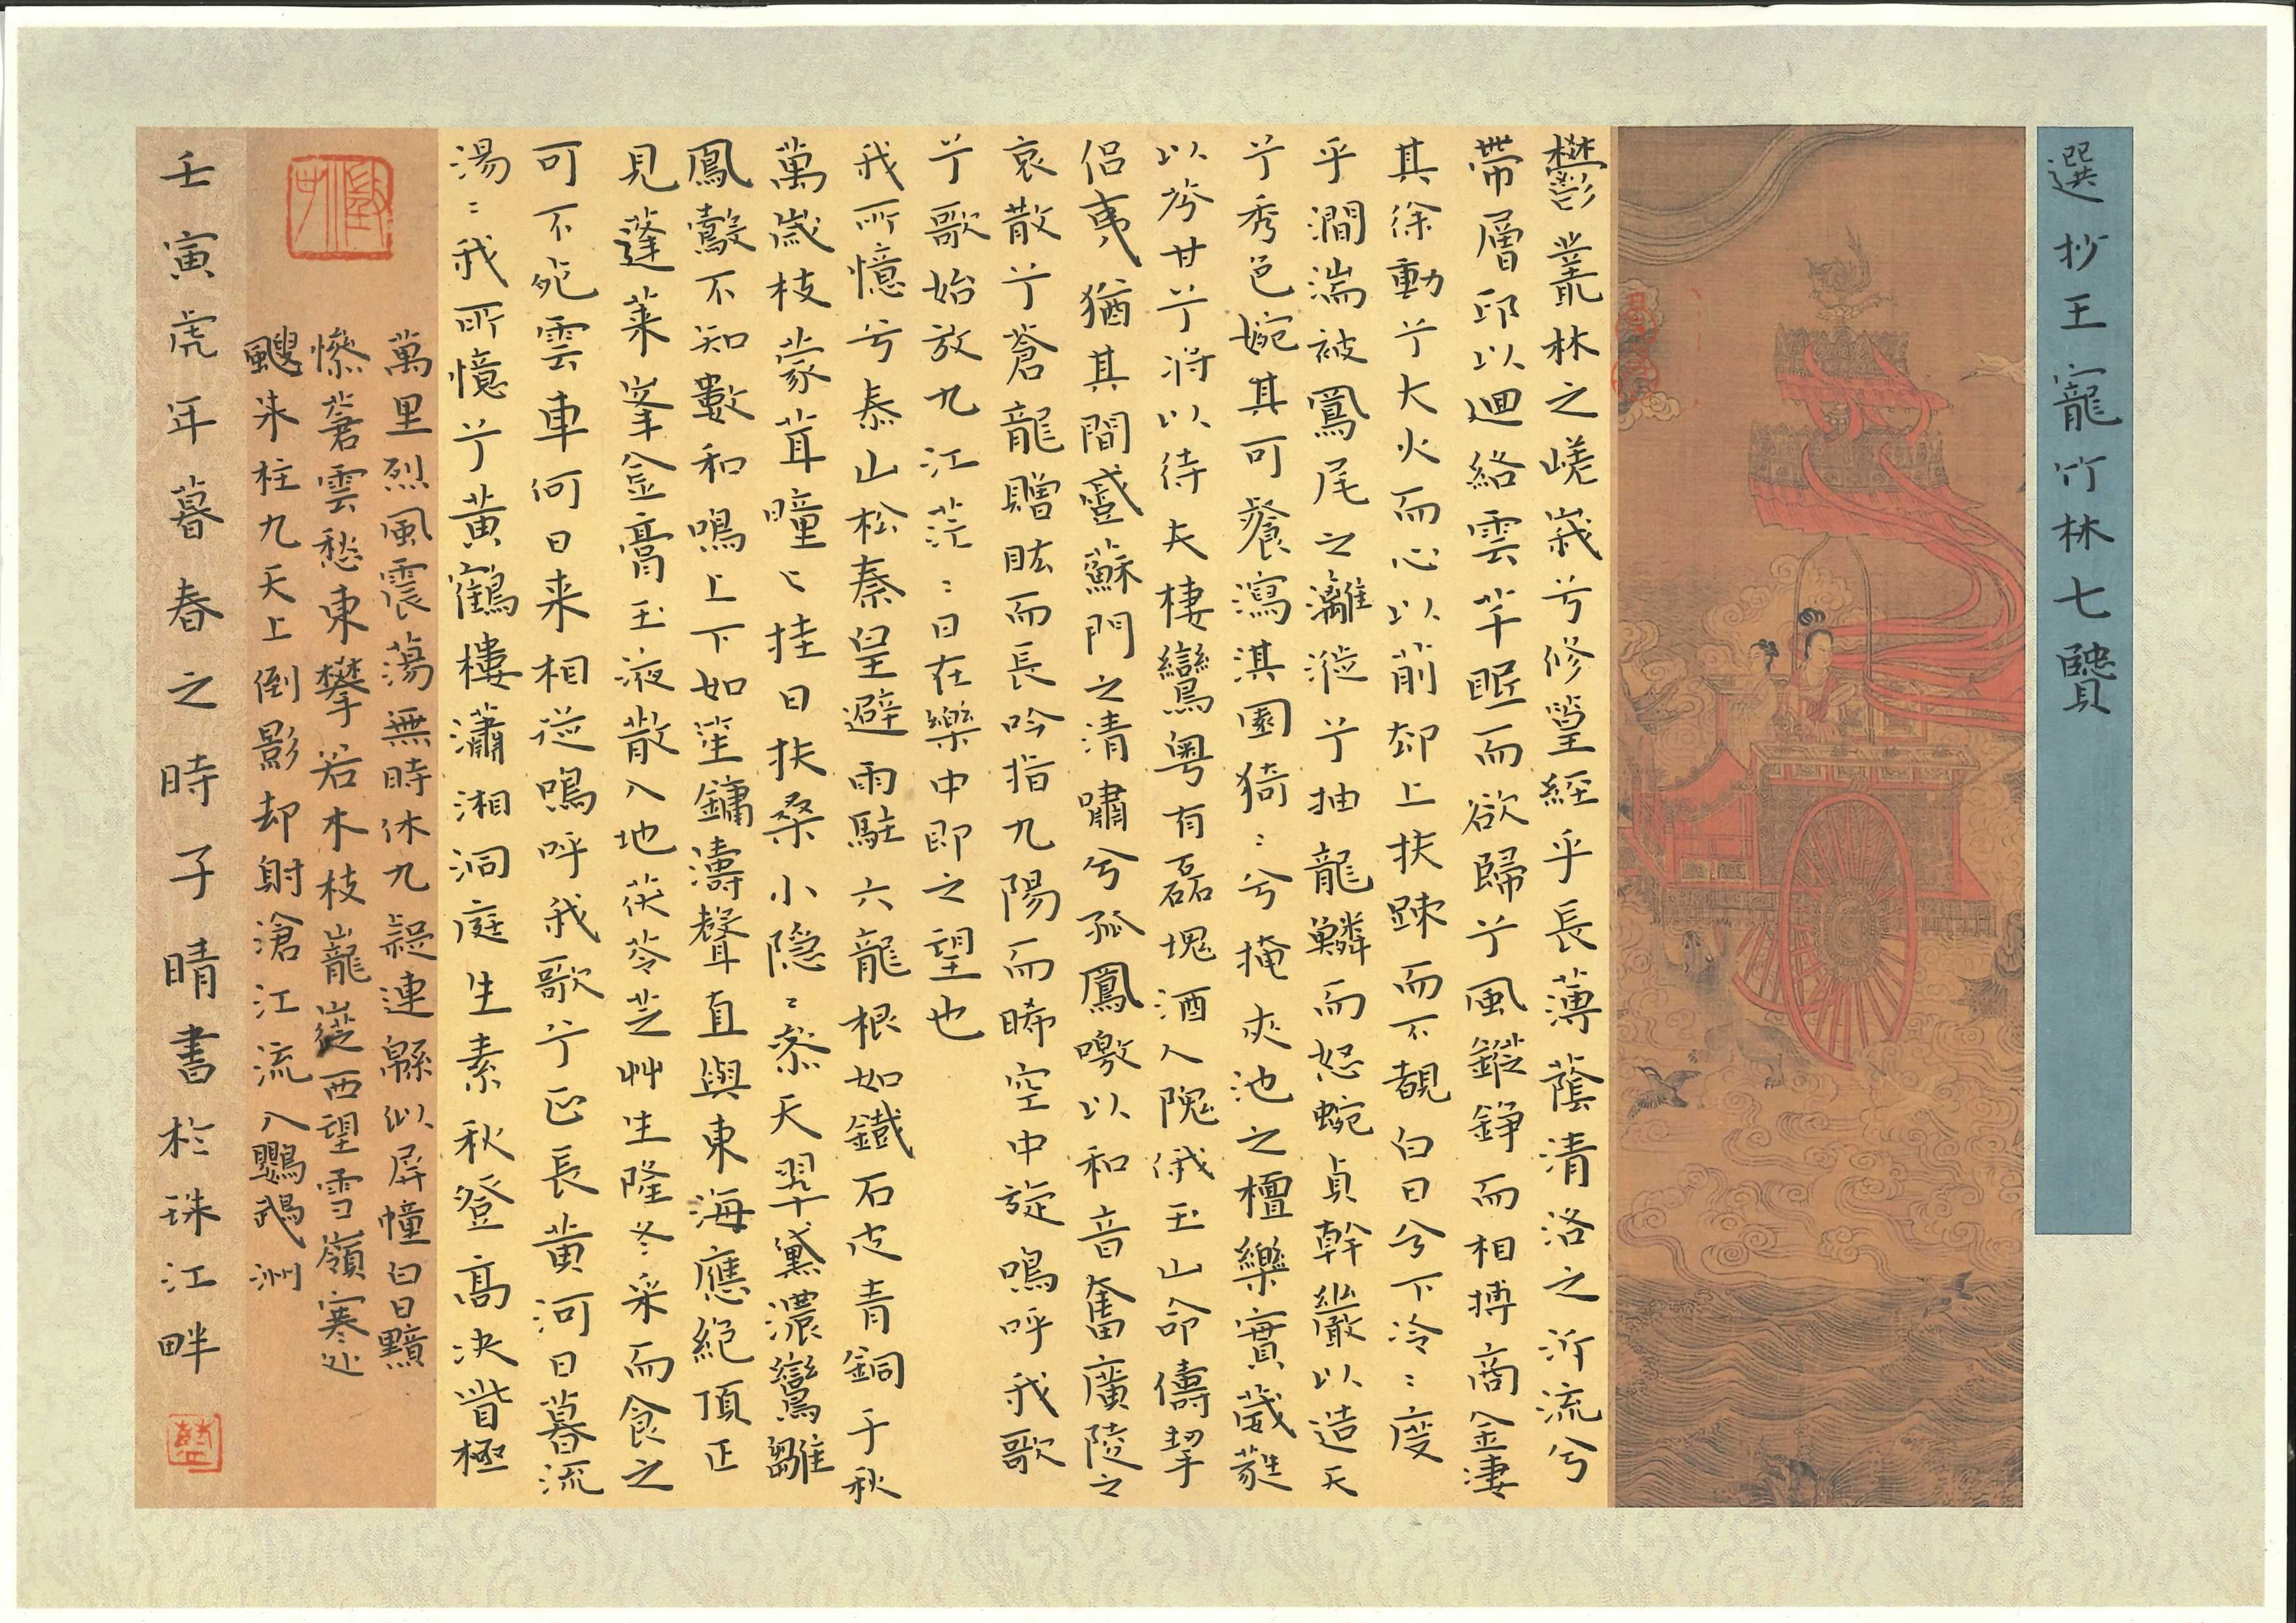 選抄王寵竹林七贒
欝叢林之嵯峩兮修篁經乎長薄蔭清洛之沂流兮
帶層邱以迴絡雲芊眠而欲歸兮風鏦錚而相摶商金凄
其徐動兮大火而心以前却上扶疎而不覩白日兮下泠:度
乎澗湍被鳳尾之灕漎兮抽龍鱗而怒蜿貞幹嚴以造天
兮秀色婉其可餐瀉淇園猗:兮掩夾池之檀欒實葳蕤
以芬甘兮将以待夫棲鸞粤有磊塊酒人隗俄玉山命儔挈
侣夷猶其間或登蘇門之清嘯兮孤鳳噭以和音奮廣陵之
哀散兮蒼龍䁬眩而長吟指九陽而晞空中旋鳴呼我歌
兮歌始放九江茫:日在樂中即之望也
我所憶兮泰山松秦皇避雨駐六龍根如鐵石皮青銅千秋
萬嵗枝蒙茸曈〻挂日扶桑小隐:叅天翠黛濃鸞雛
鳳鷇不知數和鳴上下如笙鏞濤聲直與東海應絕頂正
見蓬萊峯金膏玉液散入地茯苓芝艸生隆冬采而食之
可不死雲車何日来相從鳴呼我歌兮正長黄河日暮流
湯:我所憶兮黄鶴樓瀟湘洞庭生素秋登高決眥極
萬里烈風震蕩無時休九疑連緜似屏幢白日黯
慘蒼雲愁東攀若木枝巃嵸西望雪嶺寒近
颼来柱九天上倒影却射滄江流入鸚鵡洲
壬寅虎年暮春之時子晴書於珠江畔